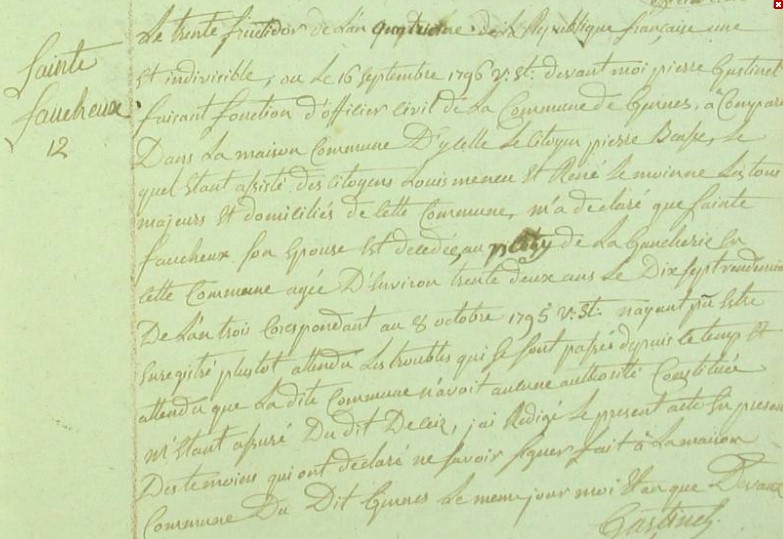 Sainte
faucheux
12
Le trente fructidor de L'an quatrieme de la Republique française une
Et indivicible, ou Le 16 Septembre 1796 v. St. devant moi pierre Gastinel
faisant fonction d'officier civil de La Commune de Genes, a Comparu
Dans La maison Commune D'ycelle Le Citoyen pierre Le
quel Etant assisté des Citoyens Louis meneu Et René Le moinne Les tous
majeurs Et domiciliés de Cette Commune, m'a declaré que Sainte
faucheux son Epouse Est decedée, au de La Gaucherie En
Cette Commune agée D'Environ trente deux ans Le Dix Sept vendemiai
De L'an trois Corespondant au 8 octobre 1795 v. St. nayant pu Estre
Enregistré plustot attendu Les troubles qui Se Sont passés depuis Le temp Et
attendu que La dite Commune n'avoit aucune authorité Constituée
m'Etant assuré Du dit Deceix, j'ai Redigé Le present acte En presence
Des temoins qui ont declaré ne Savoir Signer fait à La maison
Commune Du Dit Genes Le meme jour moi Et an que Devant
Gastinel.